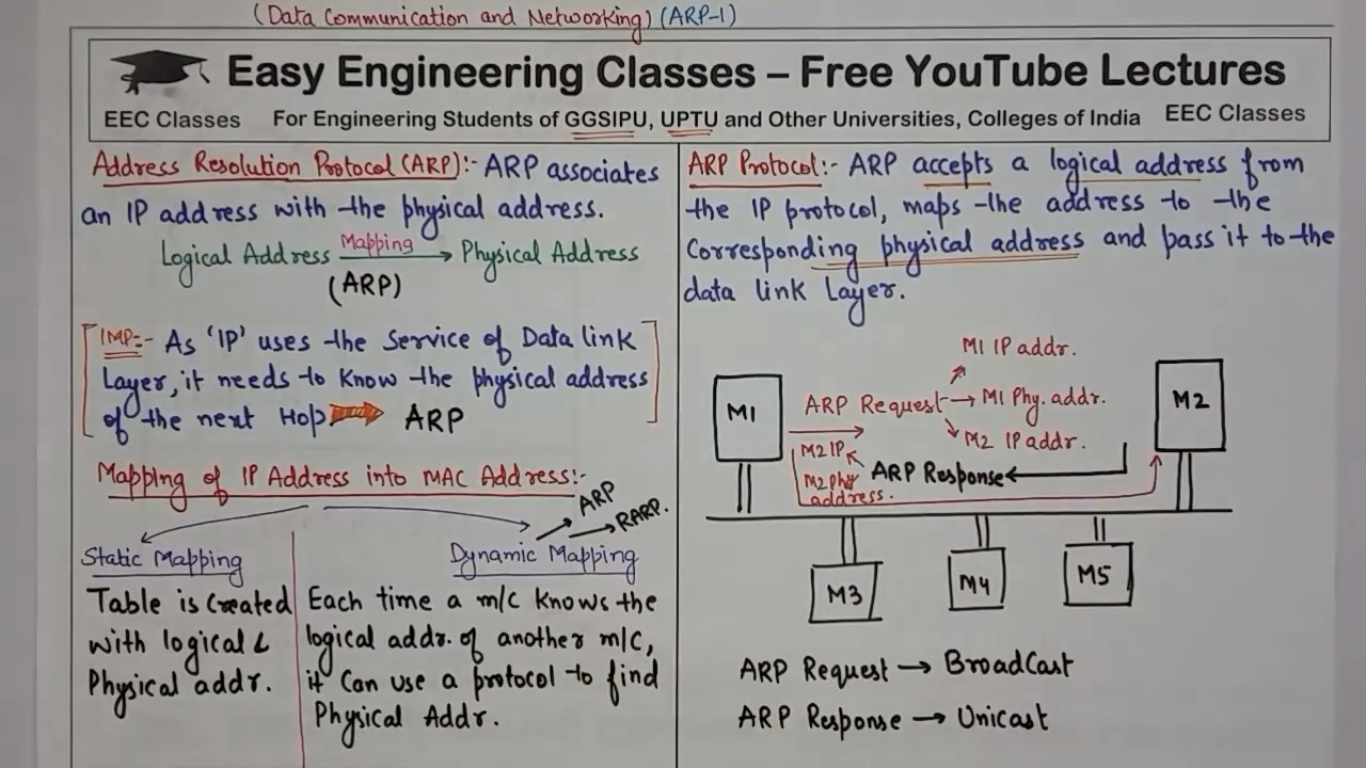 (Data Communication and Networking) (ARP-1)
Easy Engineering Classes – Free YouTube Lectures
EEC Classes For Engineering Students of GGSIPU, UPTU and Other Universities, Colleges of India EEC Classes
Address Resolution Protocol (ARP):- ARP associates
an IP address with the physical address.
Logical Address Mapping → Physical Address
(ARP)
IMP:- As 'IP' uses the Service of Data link
Layer, it needs to know the physical address
of the next Hop ARP
Mapping of IP Address into MAC Address:-
ARP
RARP.
Static Mapping
Table is Created
with logical &
Physical addr.
Dynamic Mapping
Each time a m/c knows the
logical addr. of another m/c,
it Can use a protocol to find
Physical Addr.
ARP Protocol:- ARP accepts a logical address from
the IP protocol, maps the address to the
Corresponding physical address and pass it to the
data link Layer.
M1 IP addr.
M1
ARP Request → M1 Phy. addr.
M2
M2 IP addr.
M2 IP
ARP Response
M2 phy
address.
M3
M4
M5
ARP Request → BroadCast
ARP Response → Unicast